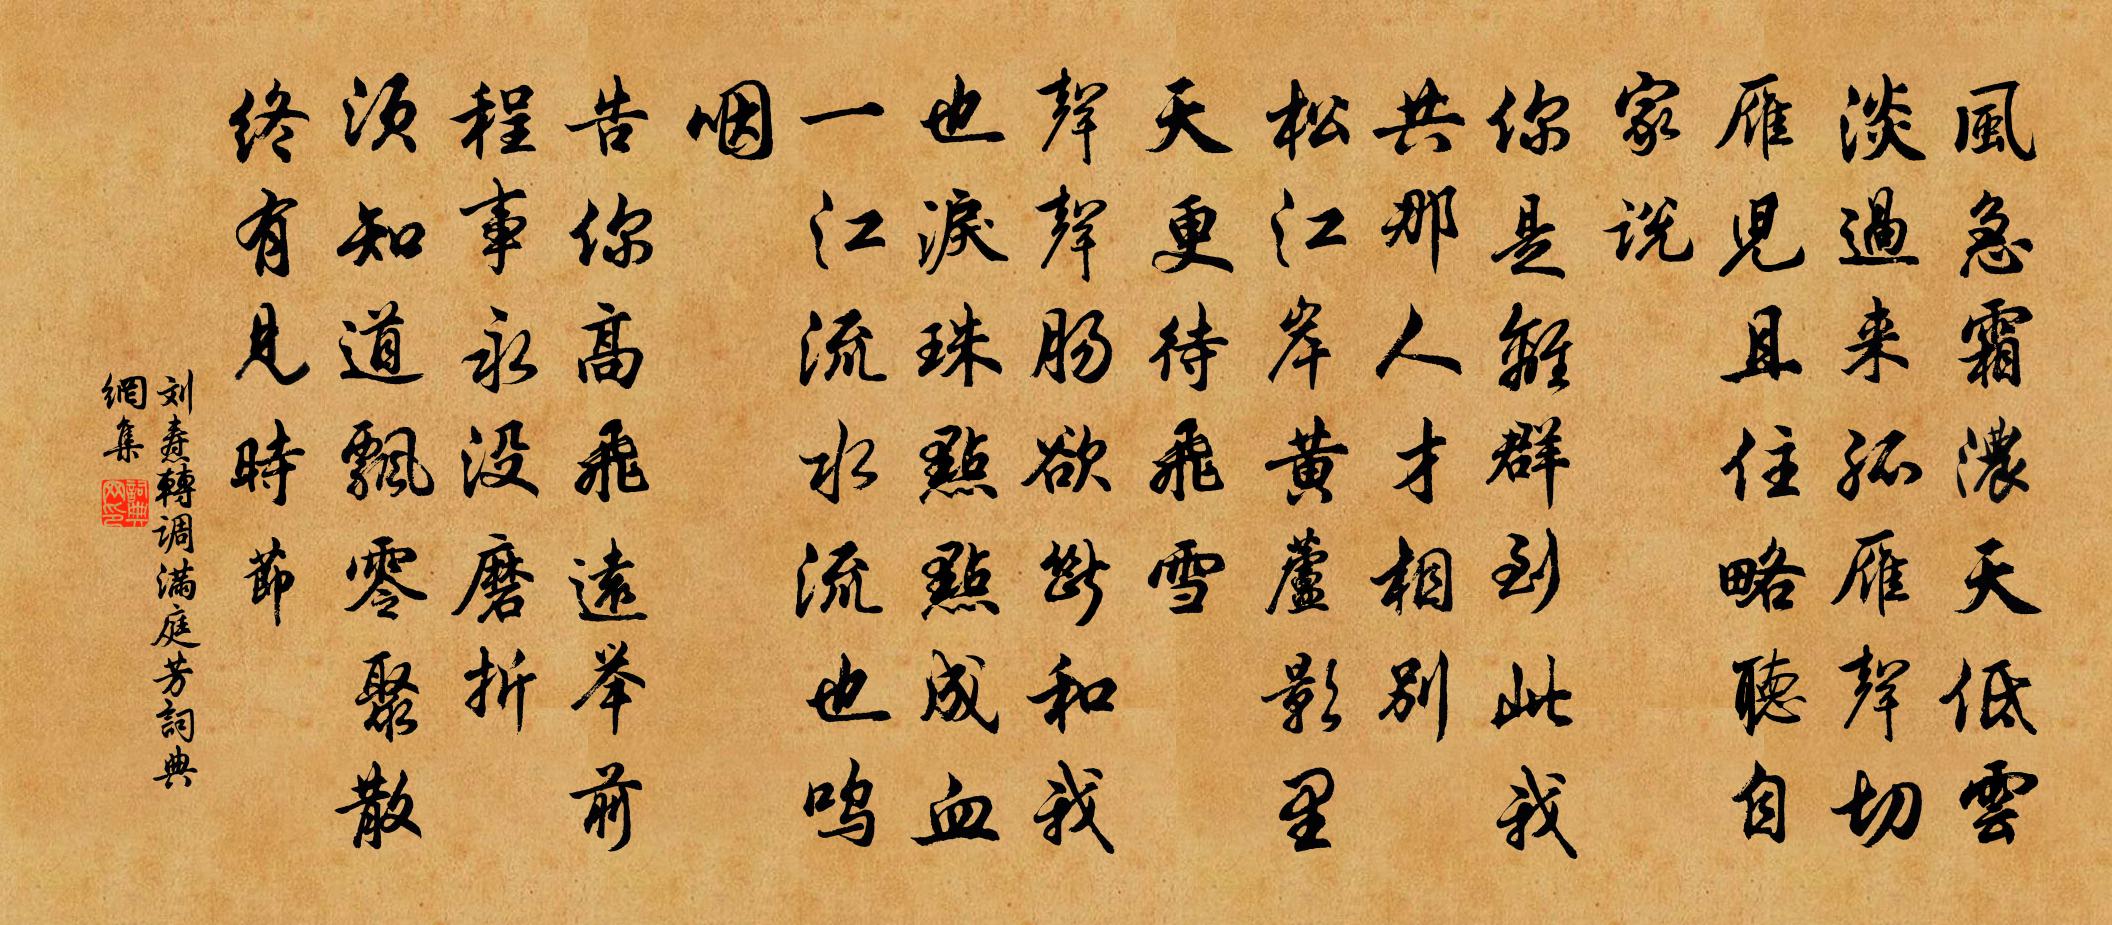 風急霜濃天低雲
淡過来孤雁聲切
雁児且住略聽自
家説
你是離群到此我
共那人才相別
松江岸黄蘆影里
天更待飛雪
聲聲肠欲斷和我
也淚珠點點成血
一江流水流也鸣
咽
告你高飛遠举前
程事永没磨折
須知道飄零聚散
終有見時節
刘燾轉调满庭芳詞典
網集
詞典
网印